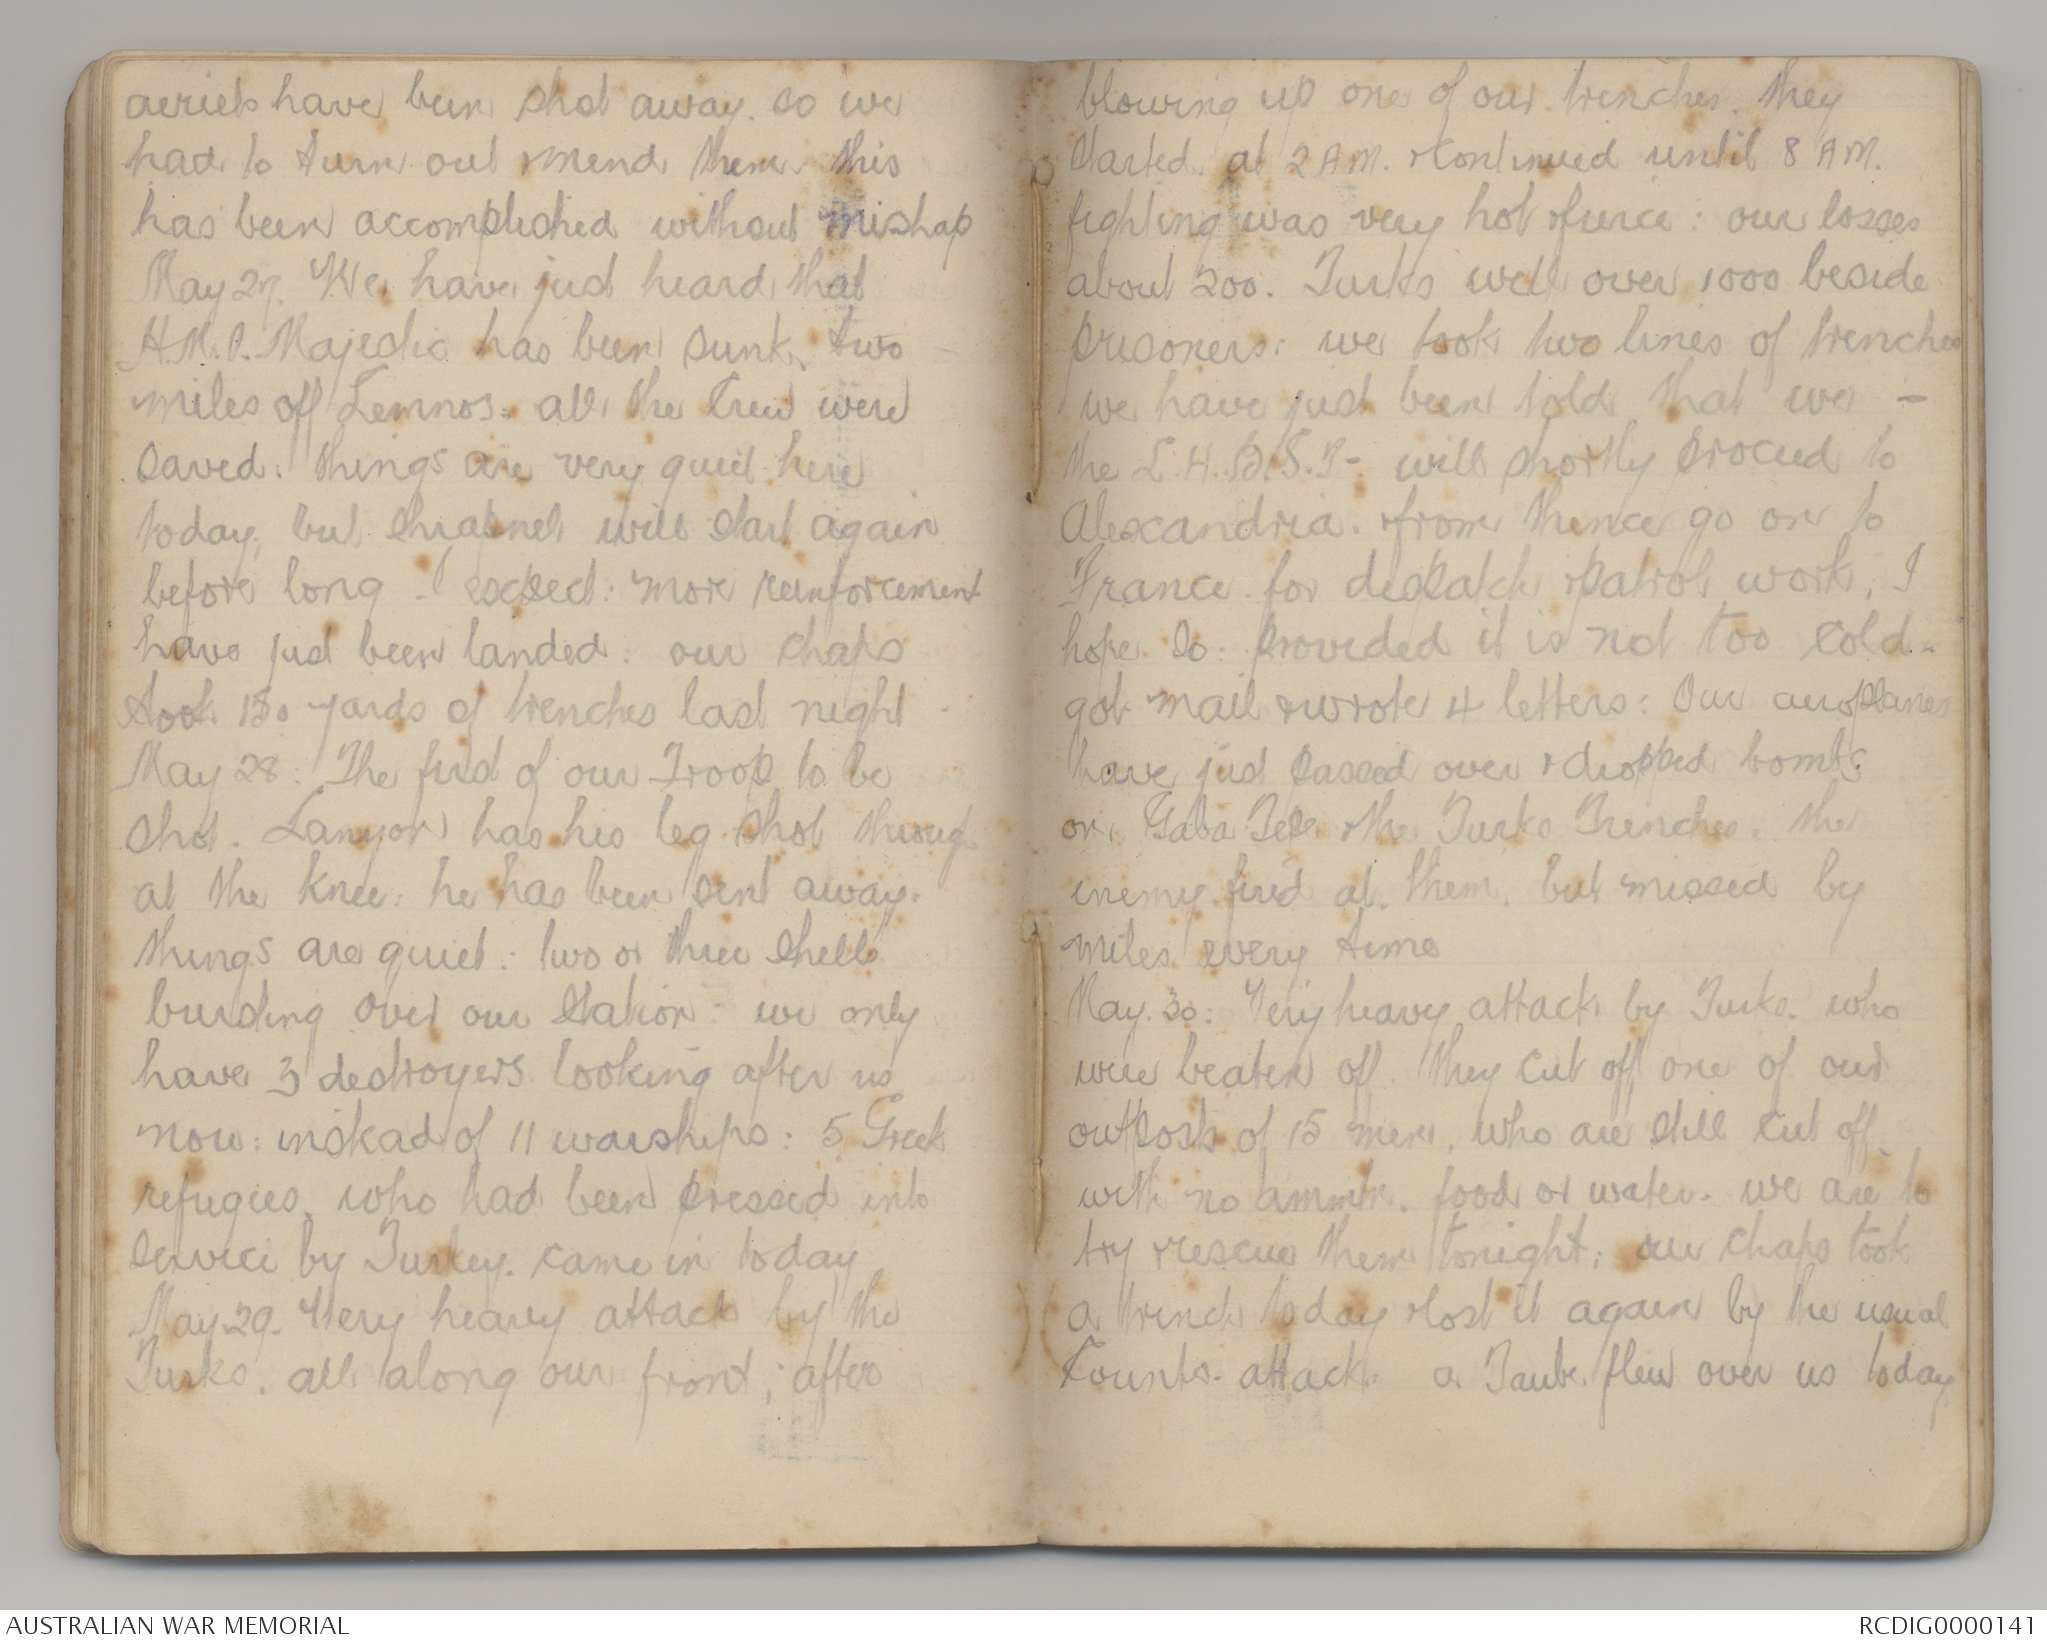 aeriels have been shot away. so we
had to turn out & mend them. this
has been accomplished without mishap
May 27. We have just heard that
H.M.S. Majestic has been sunk, two
miles off Lemnos. all the crew were
saved: things are very quiet here
today, but shrapnel will start again
before long I expect: more reinforcement
have just been landed: our chaps
took 150 yards of trenches last night
May 28: The first of our Troop to be
shot. Lanyon has his leg shot through
at the knee: he has been sent away.
things are quiet: two or three shells
bursting over our station - we only
have 3 destroyers looking after us
now: instead of 11 warships: 5 Greek
refugies, who had been pressed into
service by Turkey. came in today
May 29. Very heavy attack by the
Turks. all along our front; after
blowing up one of our trenches. they
started at 2 AM. & continued until 8 AM.
fighting was very hot & fierce: our losses
about 200. Turks well over 1000 beside
prisoners: we took two lines of trenches
we have just been told that we -
the L.H.B.S.T- will shortly proceed to
Alexandria. & from thence go on to
France for despatch & patrol work. I
hope so: provided it is not too cold-
got mail & wrote 4 letters: Our aeroplanes
have just passed over & dropped bombs
on Gaba Tepe & the Turks Trenches. the
enemy fired at them, but missed by
miles every time
May. 30: Very heavy attack by Turks. who
were beaten off. They cut off one of our
outposts of 15 men, who are still cut off
with no ammtn. food or water. we are to
try & rescue them tonight: our chaps took
a trench today & lost it again by the usual
Counter-attack. a Taube flew over us today
AUSTRALIAN WAR MEMORIAL
RCDIG0000141